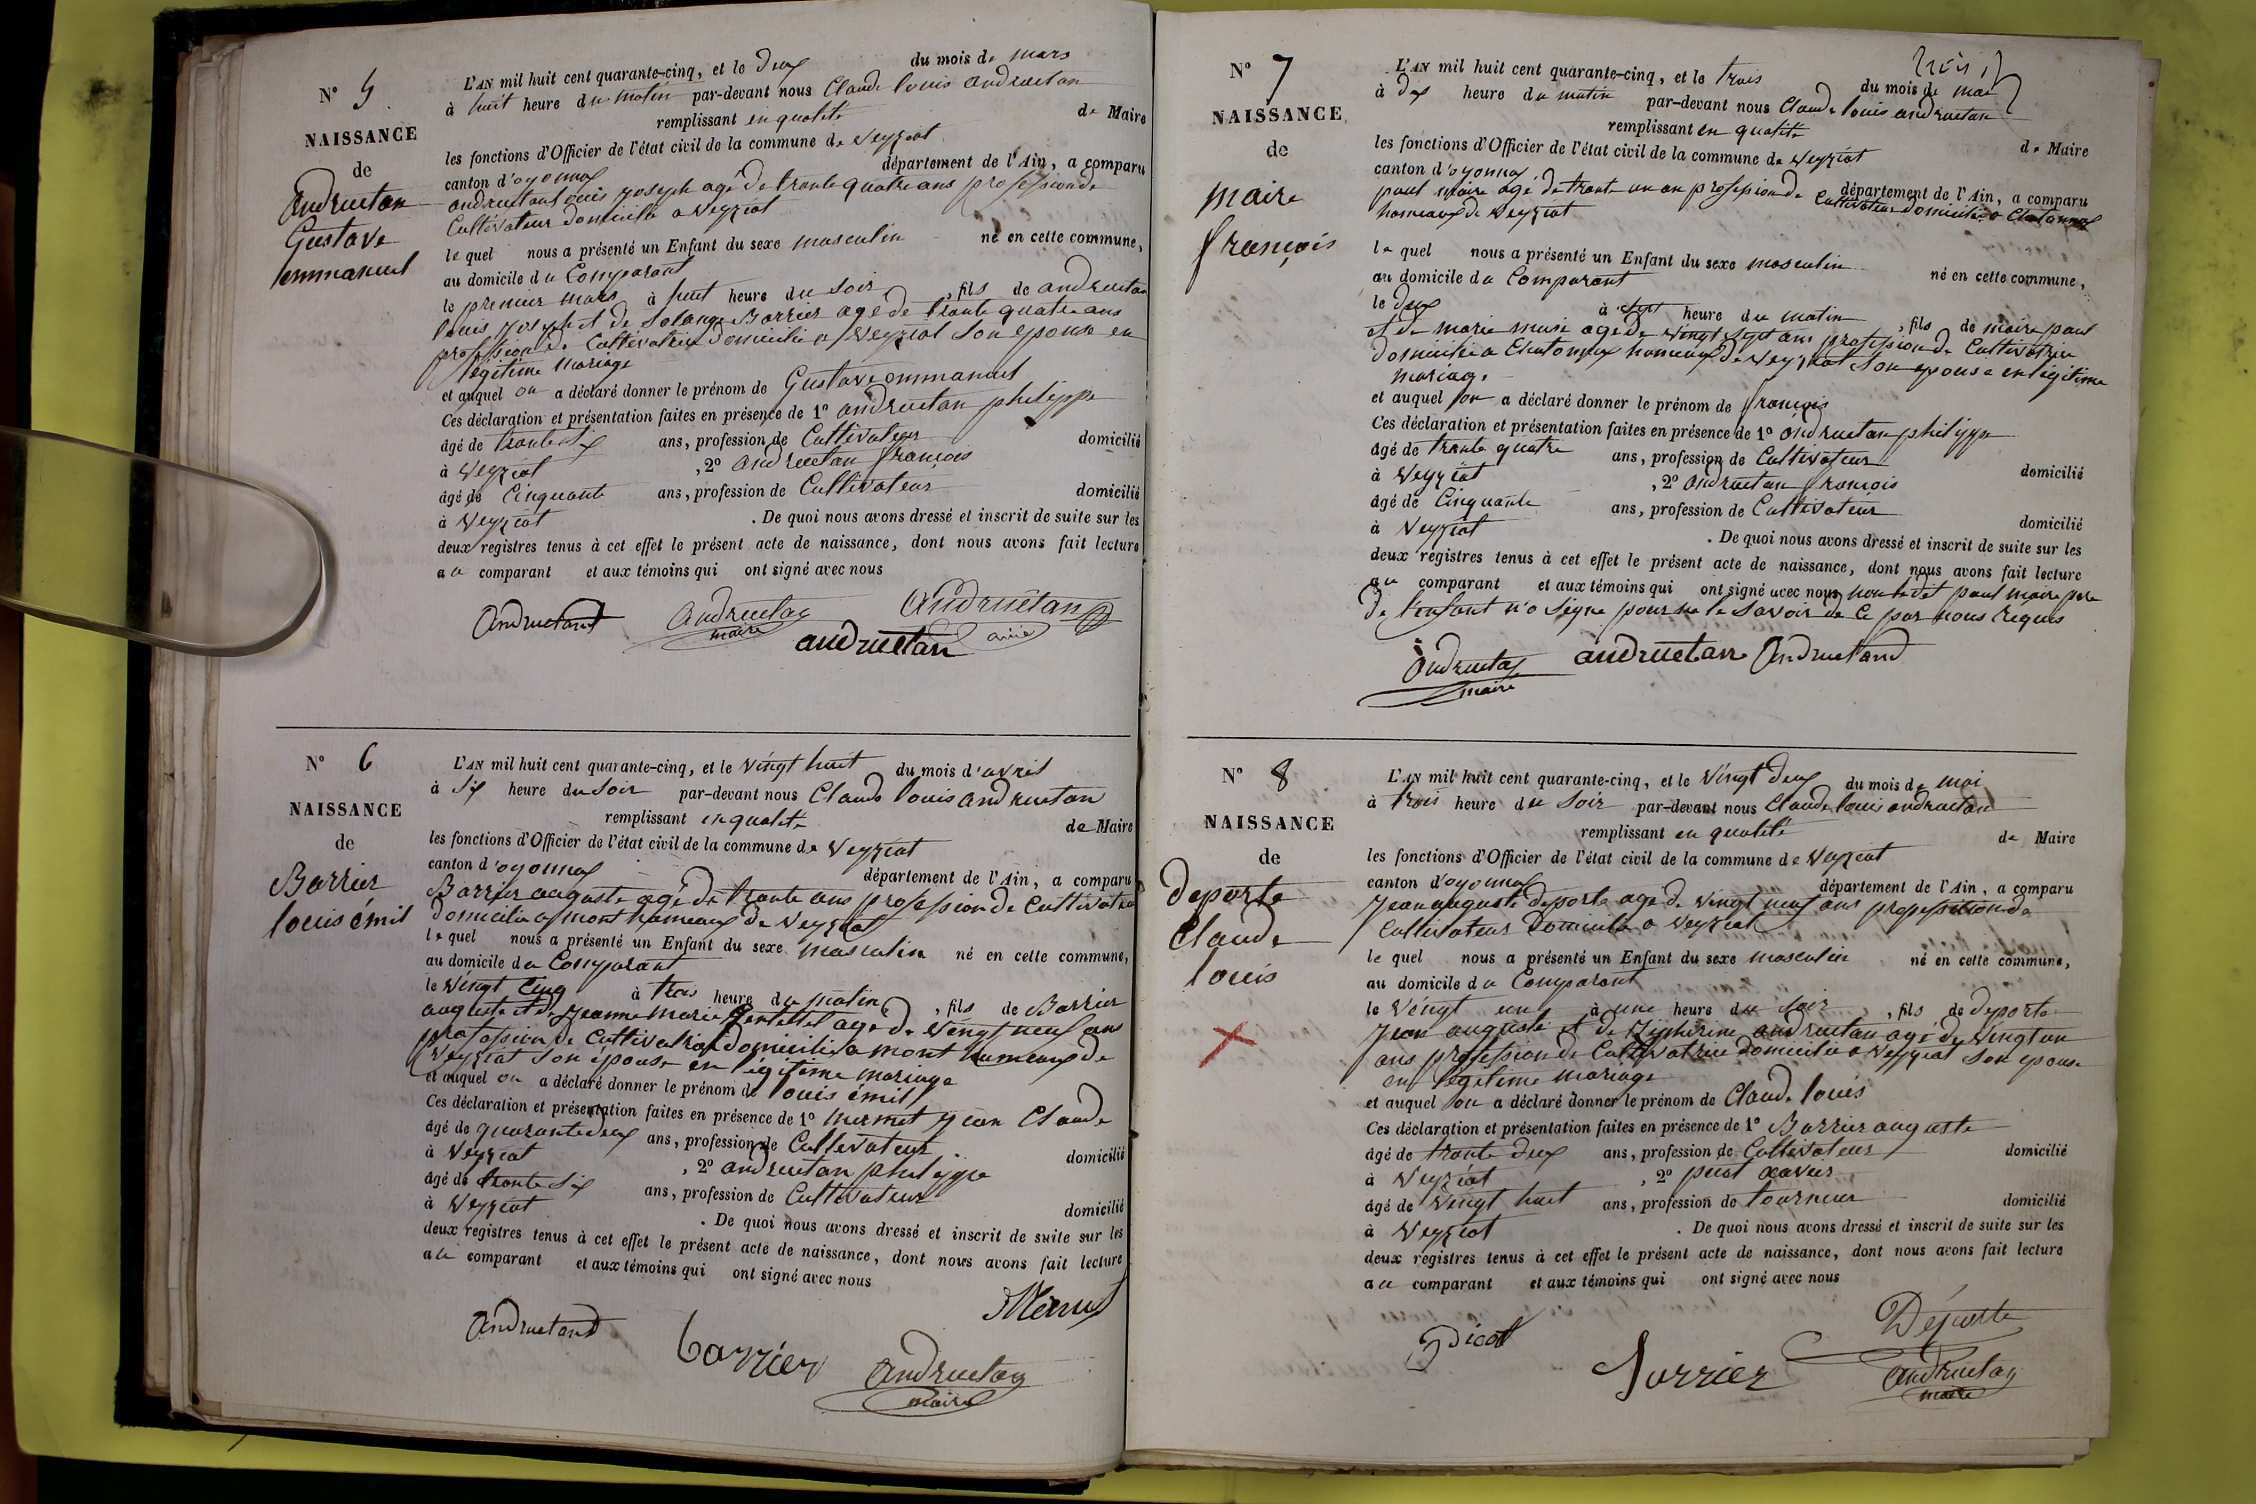 N° 5
NAISSANCE
de
andruetan
Gustave
emmanuel
L'AN mil huit cent quarante-cinq, et le deux du mois de mars
à huit heure du matin par-devant nous Claude louis andruetan
remplissant en qualité de Maire
les fonctions d'Officier de l'état civil de la commune de veyziat
canton d'oyonnax département de l'Ain, a comparu
andruetan louis joseph agé de trente quatre ans profession de
Cultivateur domicilié a veyziat
le quel nous a présenté un Enfant du sexe masculin né en cette commune,
au domicile du Comparant
le premier mars à huit heure du soir, fils de andruetan
louis joseph et de Solange Barrier agé de trente quatre ans
profession de Cultivatrice domicilié a veyziat son epouse en
légitime mariage
et auquel on a déclaré donner le prénom de Gustave emmanuel
Ces déclaration et présentation faites en présence de 1° andruetan philippe
âgé de trente six ans, profession de Cultivateur domicilié
à veyziat, 2° andruetan françois
âgé de Cinquante ans, profession de Cultivateur domicilié
à veyziat. De quoi nous avons dressé et inscrit de suite sur les
deux registres tenus à cet effet le présent acte de naissance, dont nous avons fait lecture
au comparant et aux témoins qui ont signé avec nous
andruetand andruetan andruetan
maire andruetan
N° 6
NAISSANCE
de
Barrier
louis émil
L'AN mil huit cent quarante-cinq, et le vingt huit du mois d'avril
à six heure du soir par-devant nous Claude louis andruetan
remplissant en qualité de Maire
les fonctions d'Officier de l'état civil de la commune de veyziat
canton d'oyonnax département de l'Ain, a comparu
Barrier auguste agé de trente ans profession de Cultivateur
domicilié a mont hameaux de veyziat
le quel nous a présenté un Enfant du sexe masculin né en cette commune,
au domicile du Comparant
le vingt cinq à trois heure du matin, fils de Barrier
auguste et de jeanne marie agé de vingt neuf ans
profession de Cultivatrice domicilié a mont hameaux de
veyziat son épouse en légitime mariage
et auquel on a déclaré donner le prénom de louis émil
Ces déclaration et présentation faites en présence de 1° mermet jean Claude
âgé de quarante deux ans, profession de Cultivateur domicilié
à veyziat, 2° andruetan philippe
âgé de trente six ans, profession de Cultivateur domicilié
à veyziat. De quoi nous avons dressé et inscrit de suite sur les
deux registres tenus à cet effet le présent acte de naissance, dont nous avons fait lecture
au comparant et aux témoins qui ont signé avec nous
andruetand barrier andruetan
maire
N° 7
NAISSANCE
de
maire
françois
L'AN mil huit cent quarante-cinq, et le trois du mois de mai
à dix heure du matin par-devant nous Claude louis andruetan
remplissant en qualité de Maire
les fonctions d'Officier de l'état civil de la commune de veyziat
canton d'oyonnax département de l'Ain, a comparu
paul maire agé de trente un an profession de Cultivateur domicilié a Chatonnax
hameaux de veyziat
le quel nous a présenté un Enfant du sexe masculin né en cette commune,
au domicile du Comparant
le deux à sept heure du matin, fils de maire paul
et de marie agé de vingt sept ans profession de Cultivatrice
domicilié a Chatonnax hameaux de veyziat son epouse en légitime
mariage
et auquel on a déclaré donner le prénom de françois
Ces déclaration et présentation faites en présence de 1° andruetan philippe
âgé de trente quatre ans, profession de Cultivateur domicilié
à veyziat, 2° andruetan françois
âgé de Cinquante ans, profession de Cultivateur domicilié
à veyziat. De quoi nous avons dressé et inscrit de suite sur les
deux registres tenus à cet effet le présent acte de naissance, dont nous avons fait lecture
au comparant et aux témoins qui ont signé avec nous non le dit paul maire pere
de l'enfant n'a signe pour ne le savoir de ce par nous requis
andruetan andruetan andruetand
maire
N° 8
NAISSANCE
de
deporte
Claude
louis
L'AN mil huit cent quarante-cinq, et le vingt deux du mois de mai
à trois heure du soir par-devant nous Claude louis andruetan
remplissant en qualité de Maire
les fonctions d'Officier de l'état civil de la commune de veyziat
canton d'oyonnax département de l'Ain, a comparu
jean auguste deporte agé de vingt neuf ans profession de
Cultivateur domicilié a veyziat
le quel nous a présenté un Enfant du sexe masculin né en cette commune,
au domicile du Comparant
le vingt un à une heure du soir, fils de deporte
jean auguste et de andruetan agé de vingt un
ans profession de Cultivatrice domicilié a veyziat son epouse
en légitime mariage
et auquel on a déclaré donner le prénom de Claude louis
Ces déclaration et présentation faites en présence de 1° Barrier auguste
âgé de trente deux ans, profession de Cultivateur domicilié
à veyziat, 2° xavier
âgé de vingt huit ans, profession de tourneur domicilié
à veyziat. De quoi nous avons dressé et inscrit de suite sur les
deux registres tenus à cet effet le présent acte de naissance, dont nous avons fait lecture
au comparant et aux témoins qui ont signé avec nous
Déporte
andruetan
maire